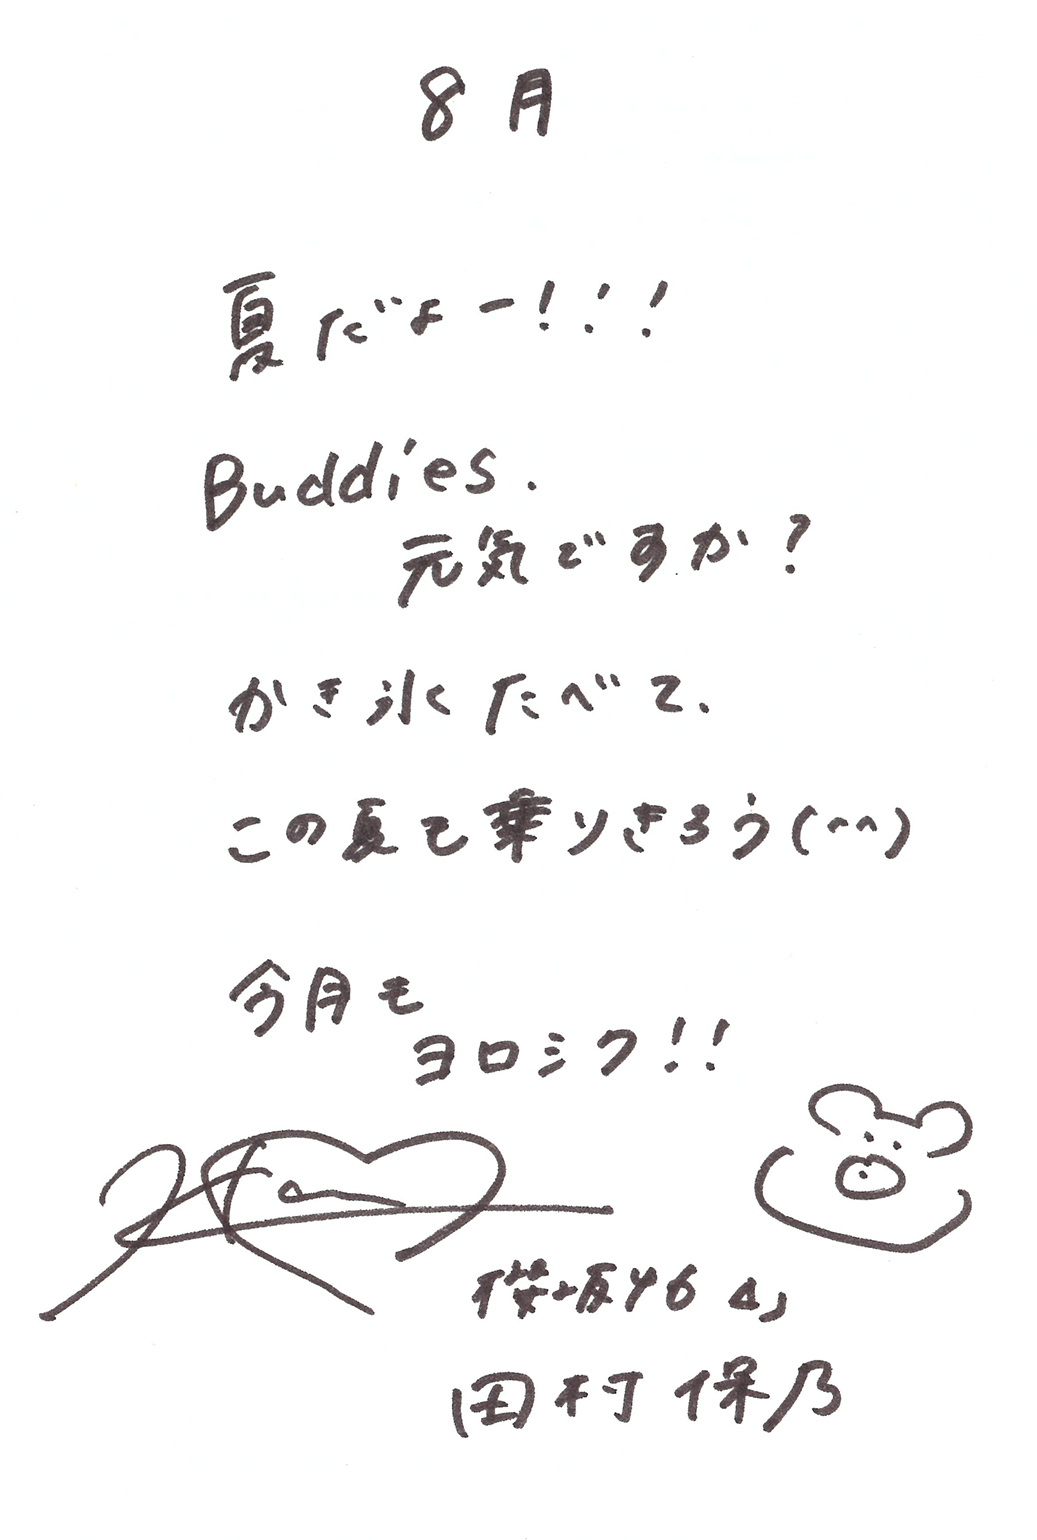 8月
夏だよー!!!
Buddies.
元気ですか?
かき氷たべて、
この夏を乗りきろう(^^)
今月も
ヨロシク!!
櫻坂46
田村保乃